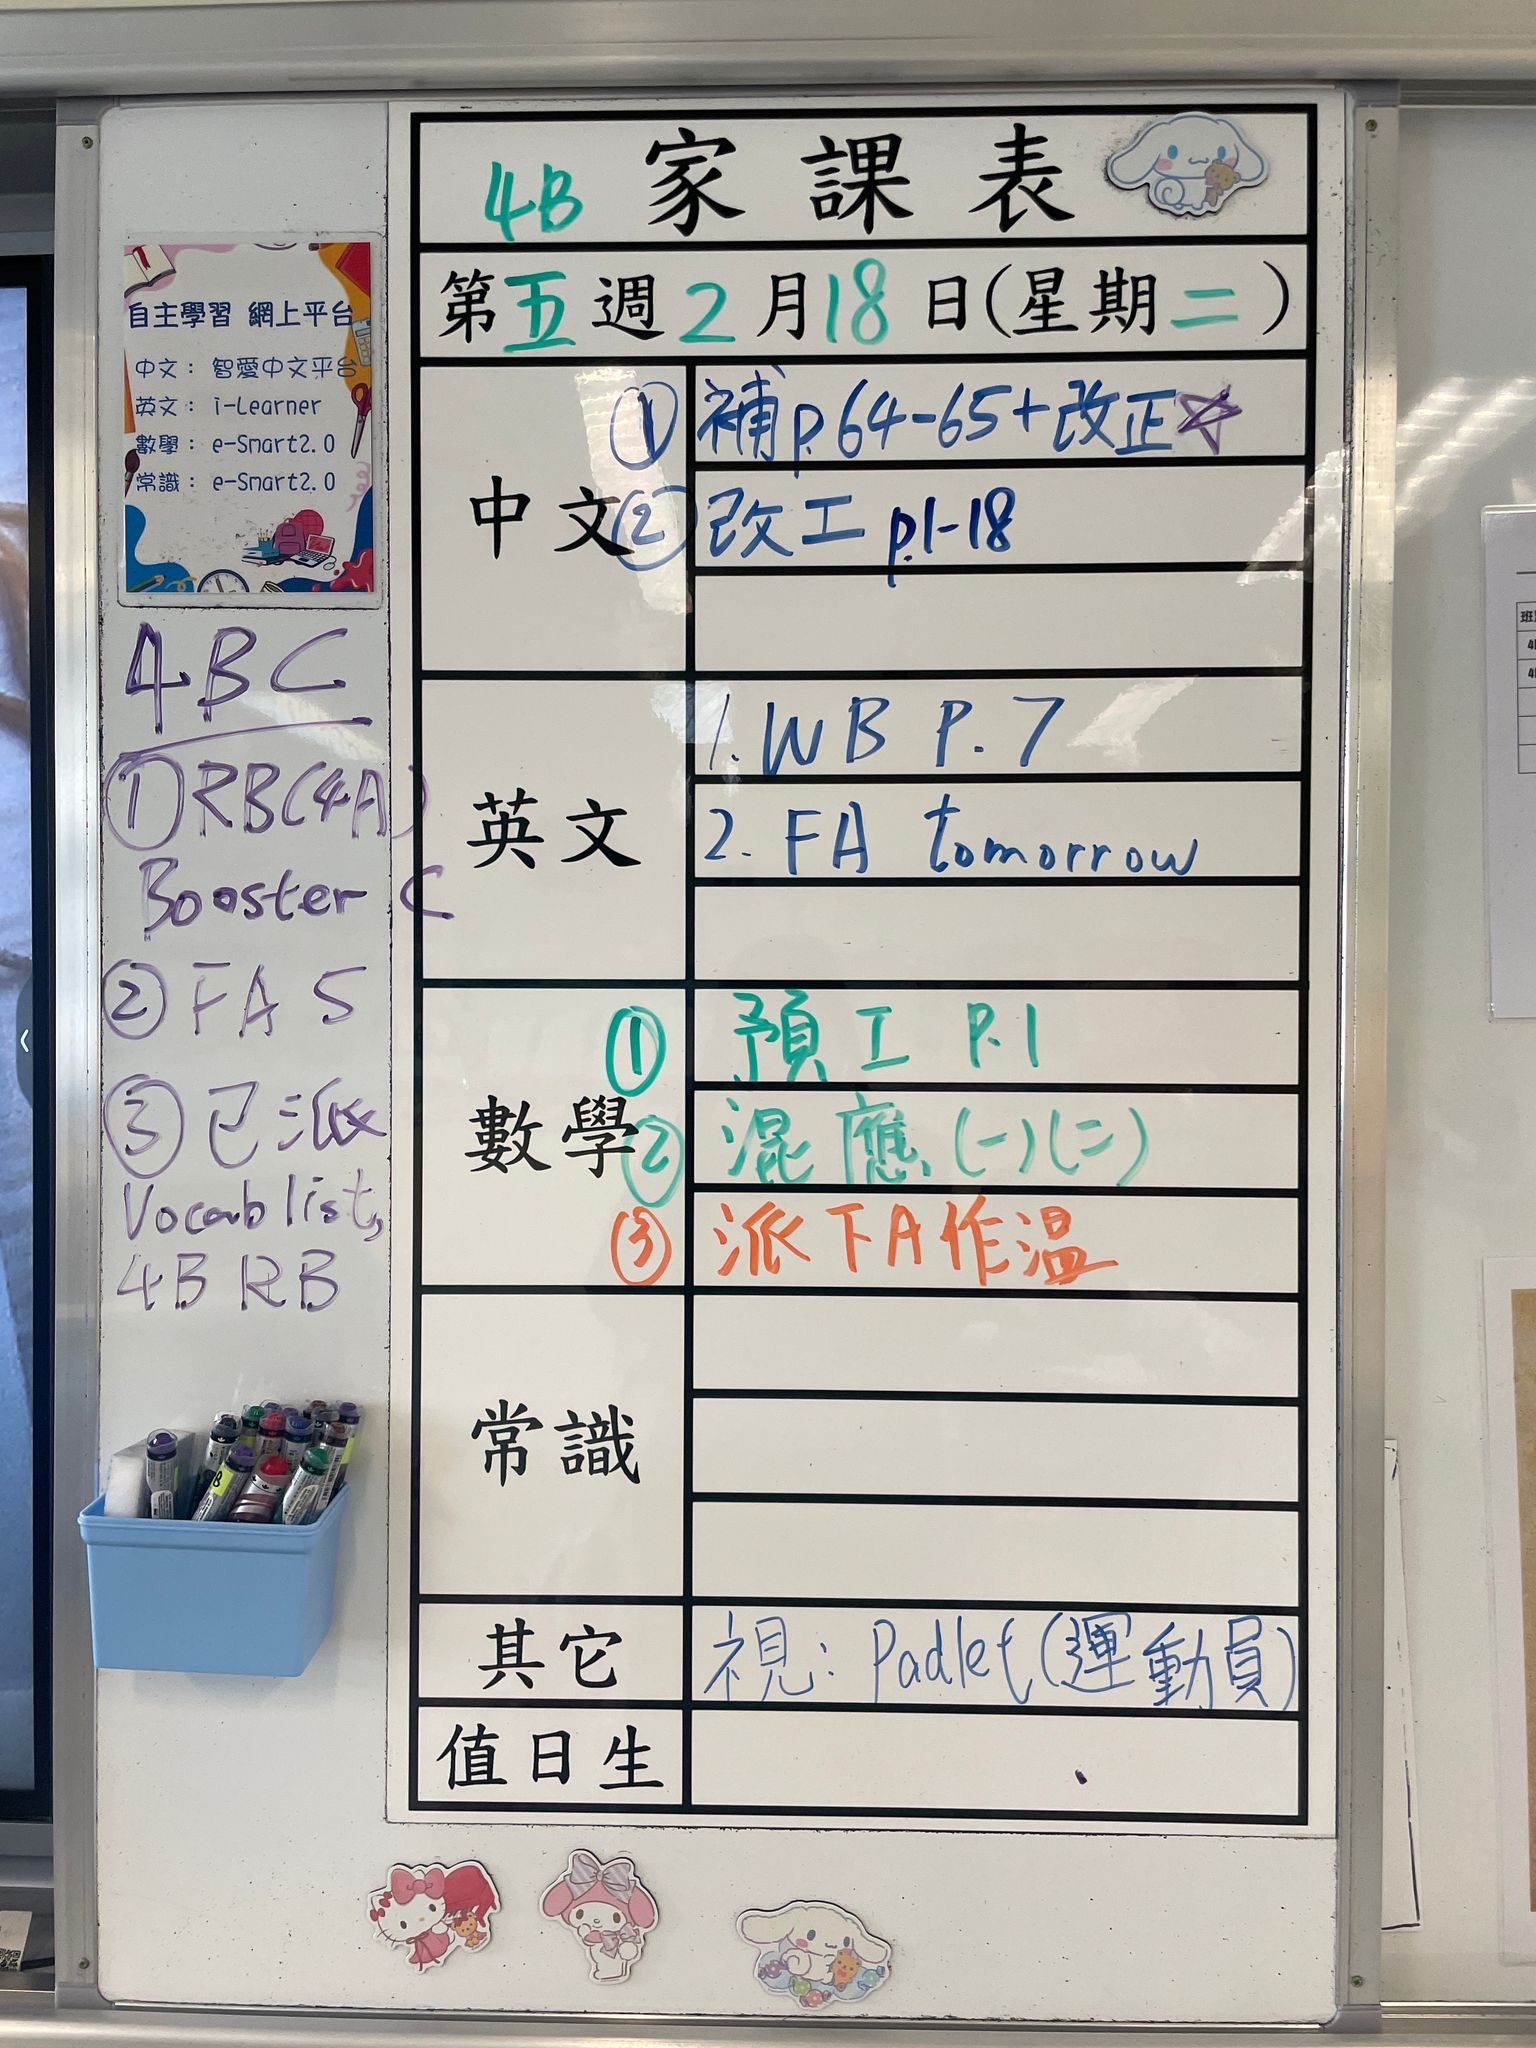 4B 家課表
第五週2月18日(星期二)
自主學習 網上平台
中文：智愛中文平台
英文：i-Learner
數學：e-Smart2.0
常識：e-Smart2.0
4BC
① RB(4A)
Booster C
② FA 5
③ 已派
Vocab list,
4B RB
中文
① 補 p.64-65+改正☆
② 改工 p.1-18
英文
1. WB P.7
2. FA tomorrow
數學
① 預工 P.1
② 混應(一)(二)
③ 派下A作溫
常識
其它
視: Padlet(運動員)
值日生
班